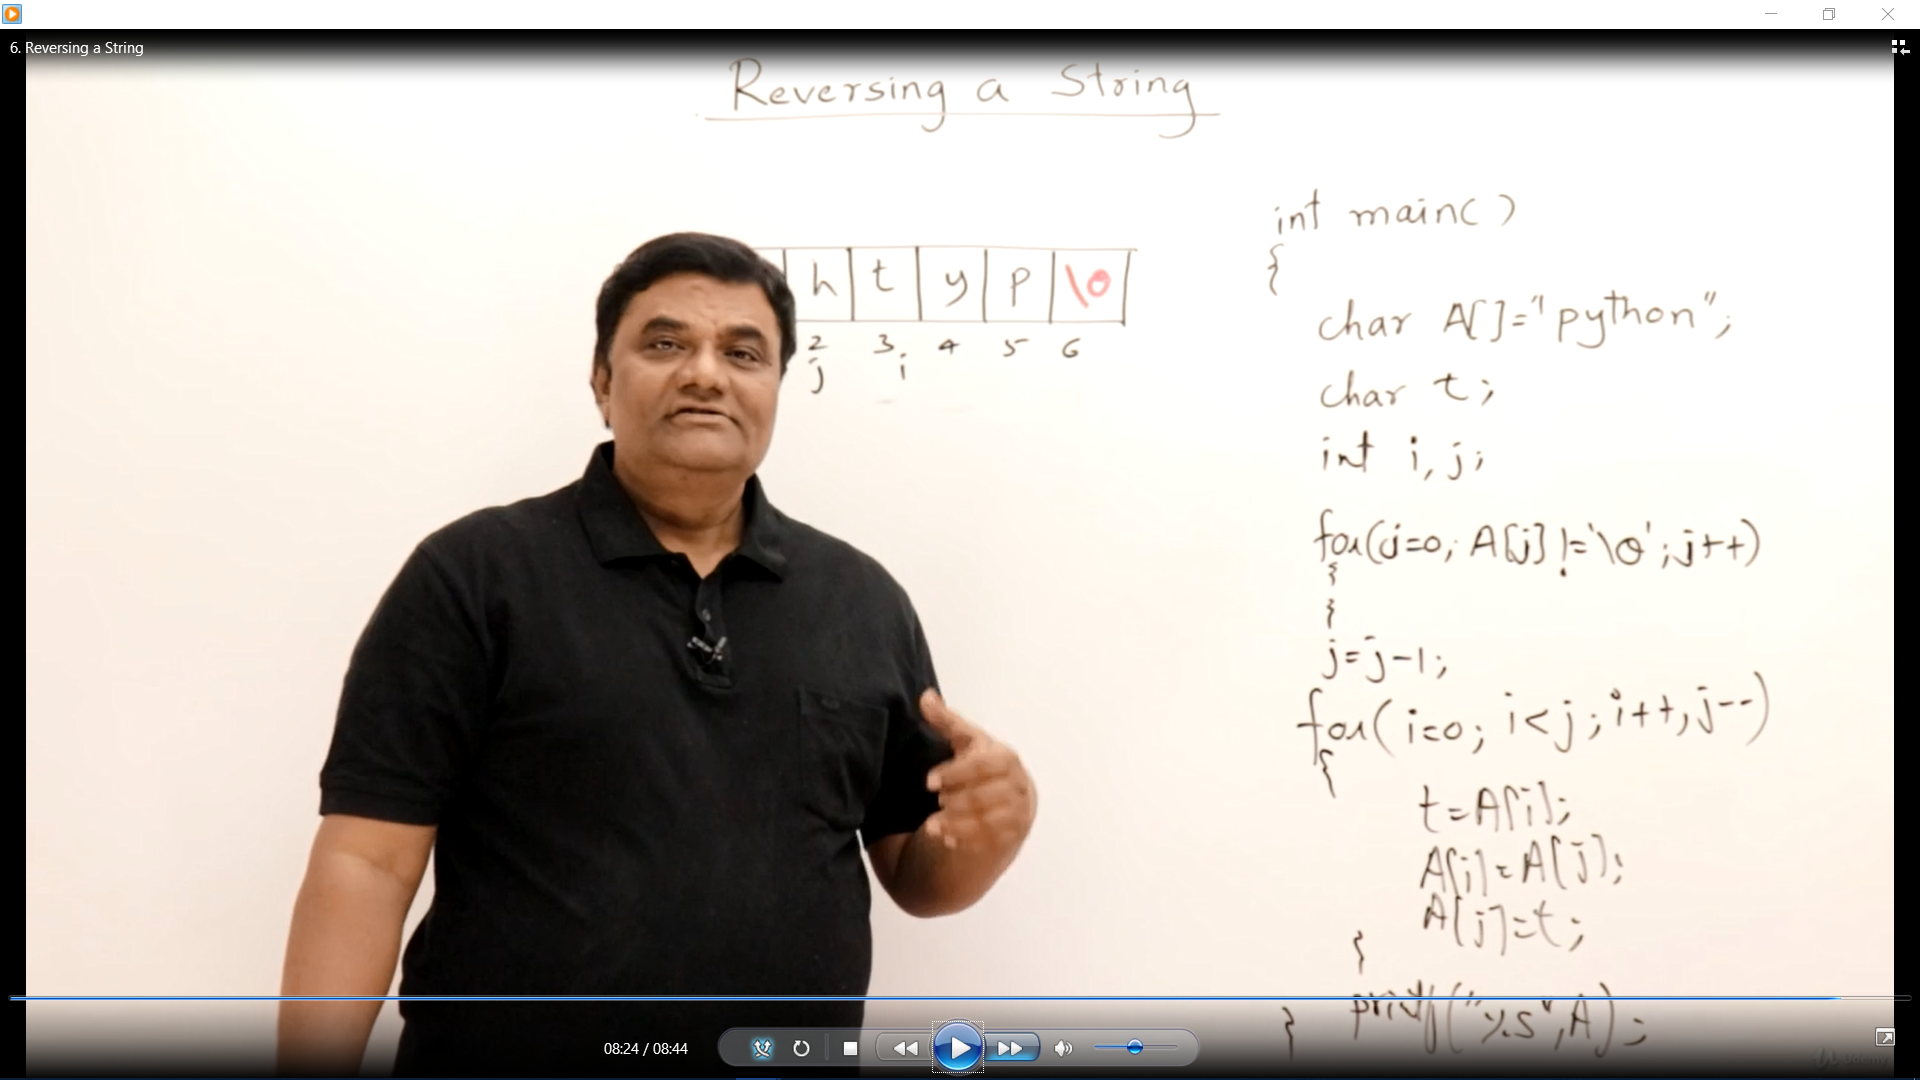 6. Reversing a String
Reversing a String
h t y p \0
2 3 4 5 6
j i
int main( )
{
char A[]="python";
char t;
int i, j;
for(j=0; A[j]!='\0';j++)
{
}
j=j-1;
for(i=0; i<j; i++,j--)
{
t=A[i];
A[i]=A[j];
A[j]=t;
}
printf("%s",A);
}
08:24 / 08:44
Udemy